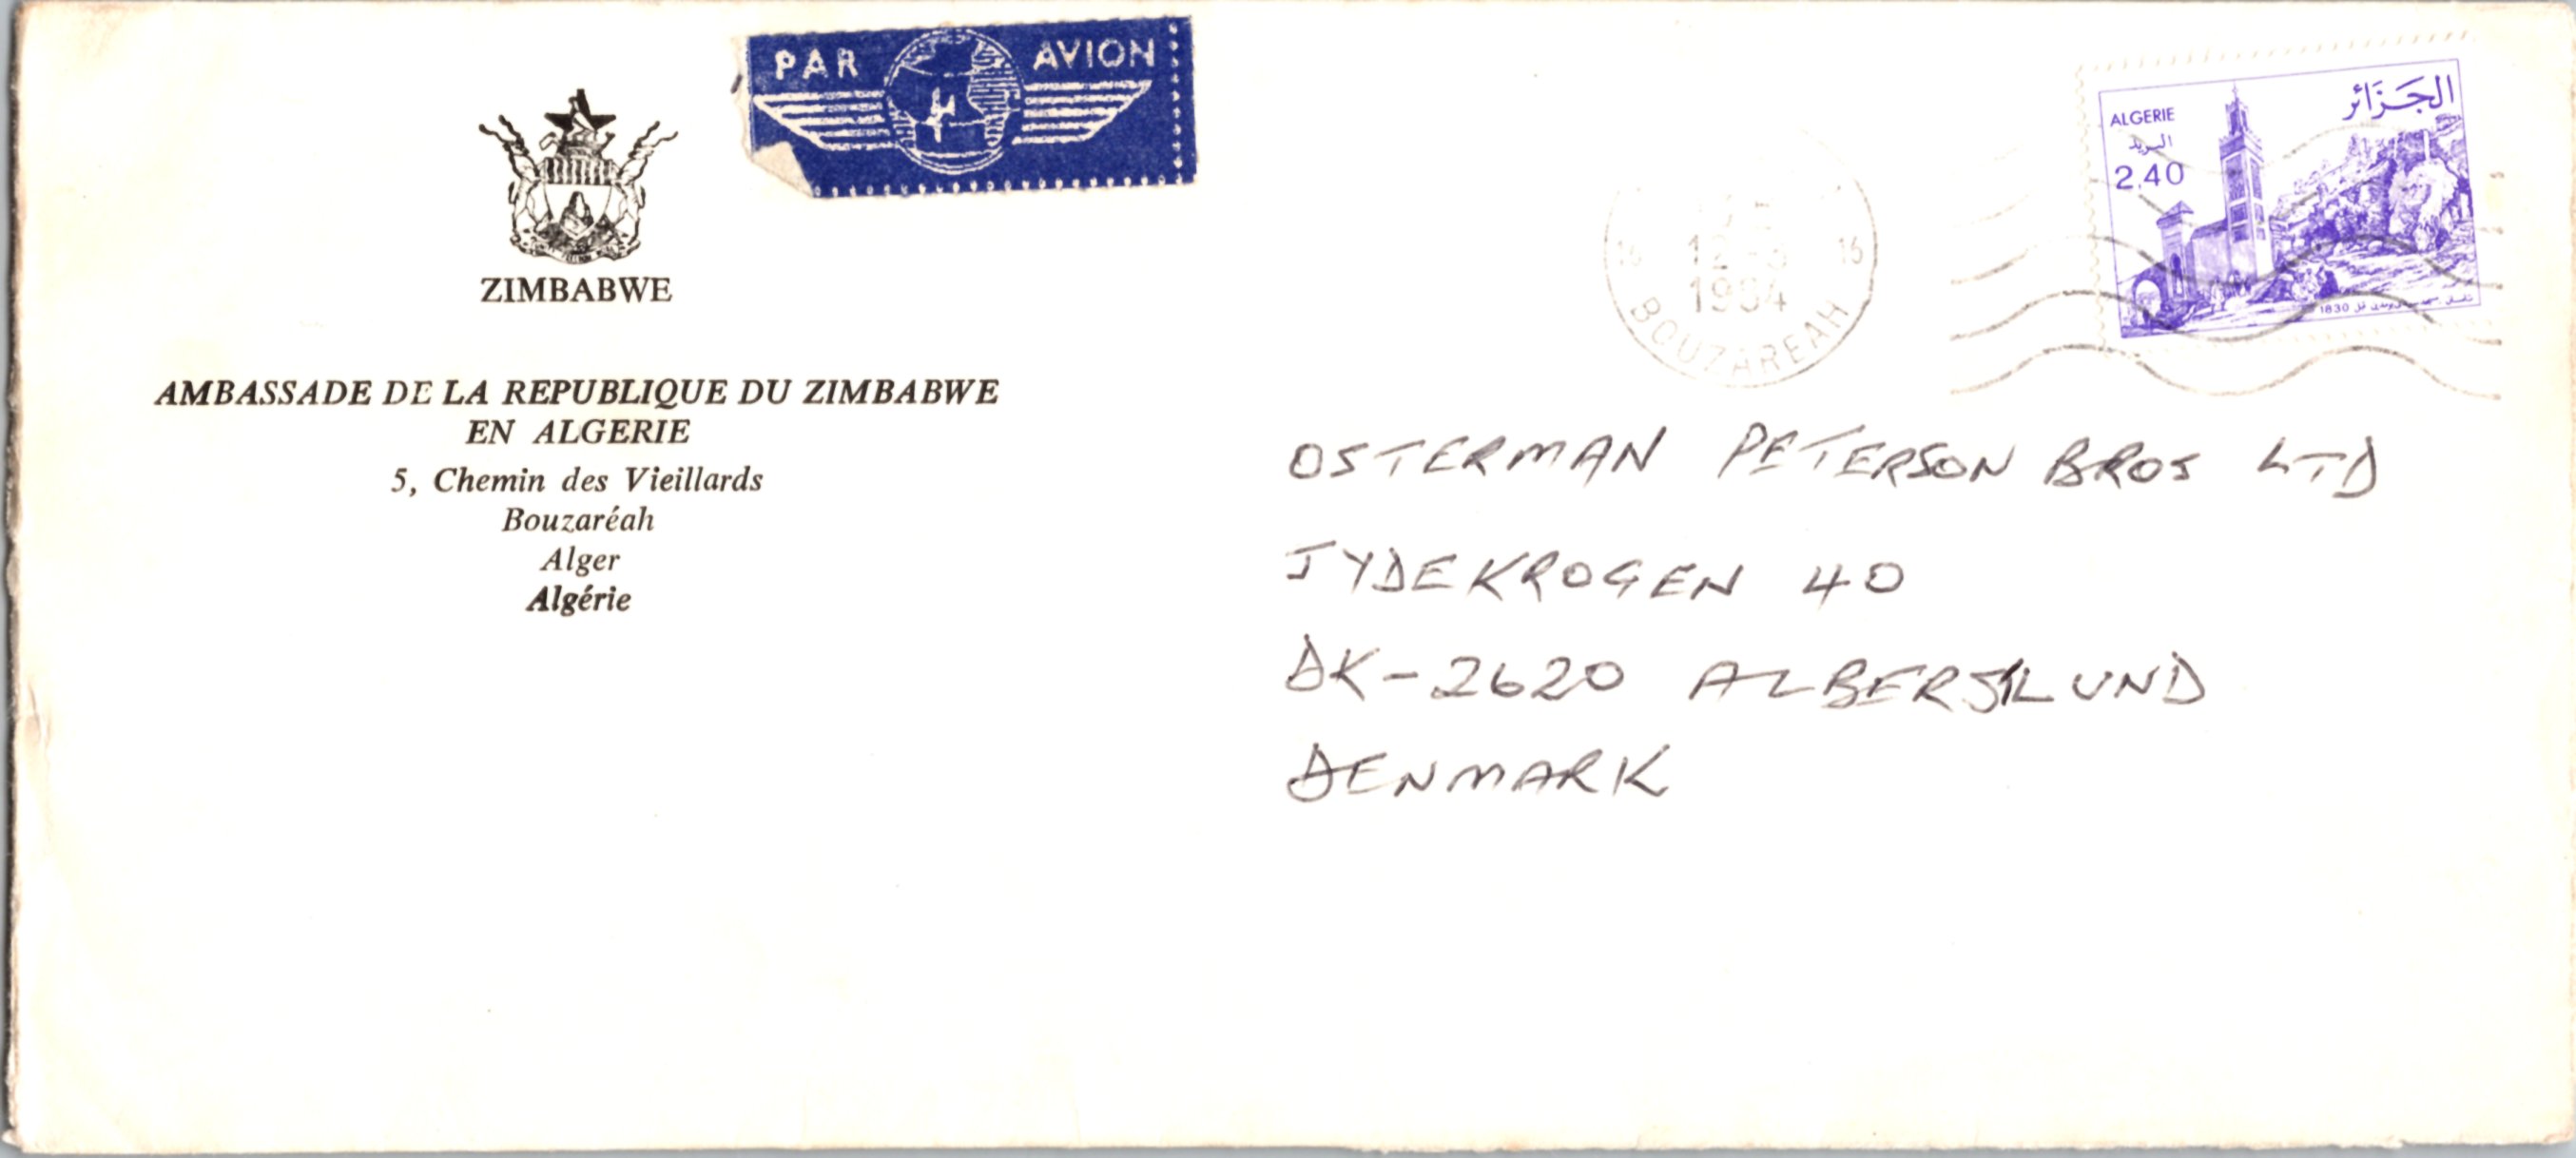 PAR AVION
ZIMBABWE
AMBASSADE DE LA REPUBLIQUE DU ZIMBABWE
EN ALGERIE
5, Chemin des Vieillards
Bouzaréah
Alger
Algérie
16 12 16
BOUZAREAH
ALGERIE
الجَزَائر
البريد
2.40
1830
OSTERMAN PETERSON BROS LTD
JYDEKROGEN 40
DK-2620 ALBERSLUND
DENMARK